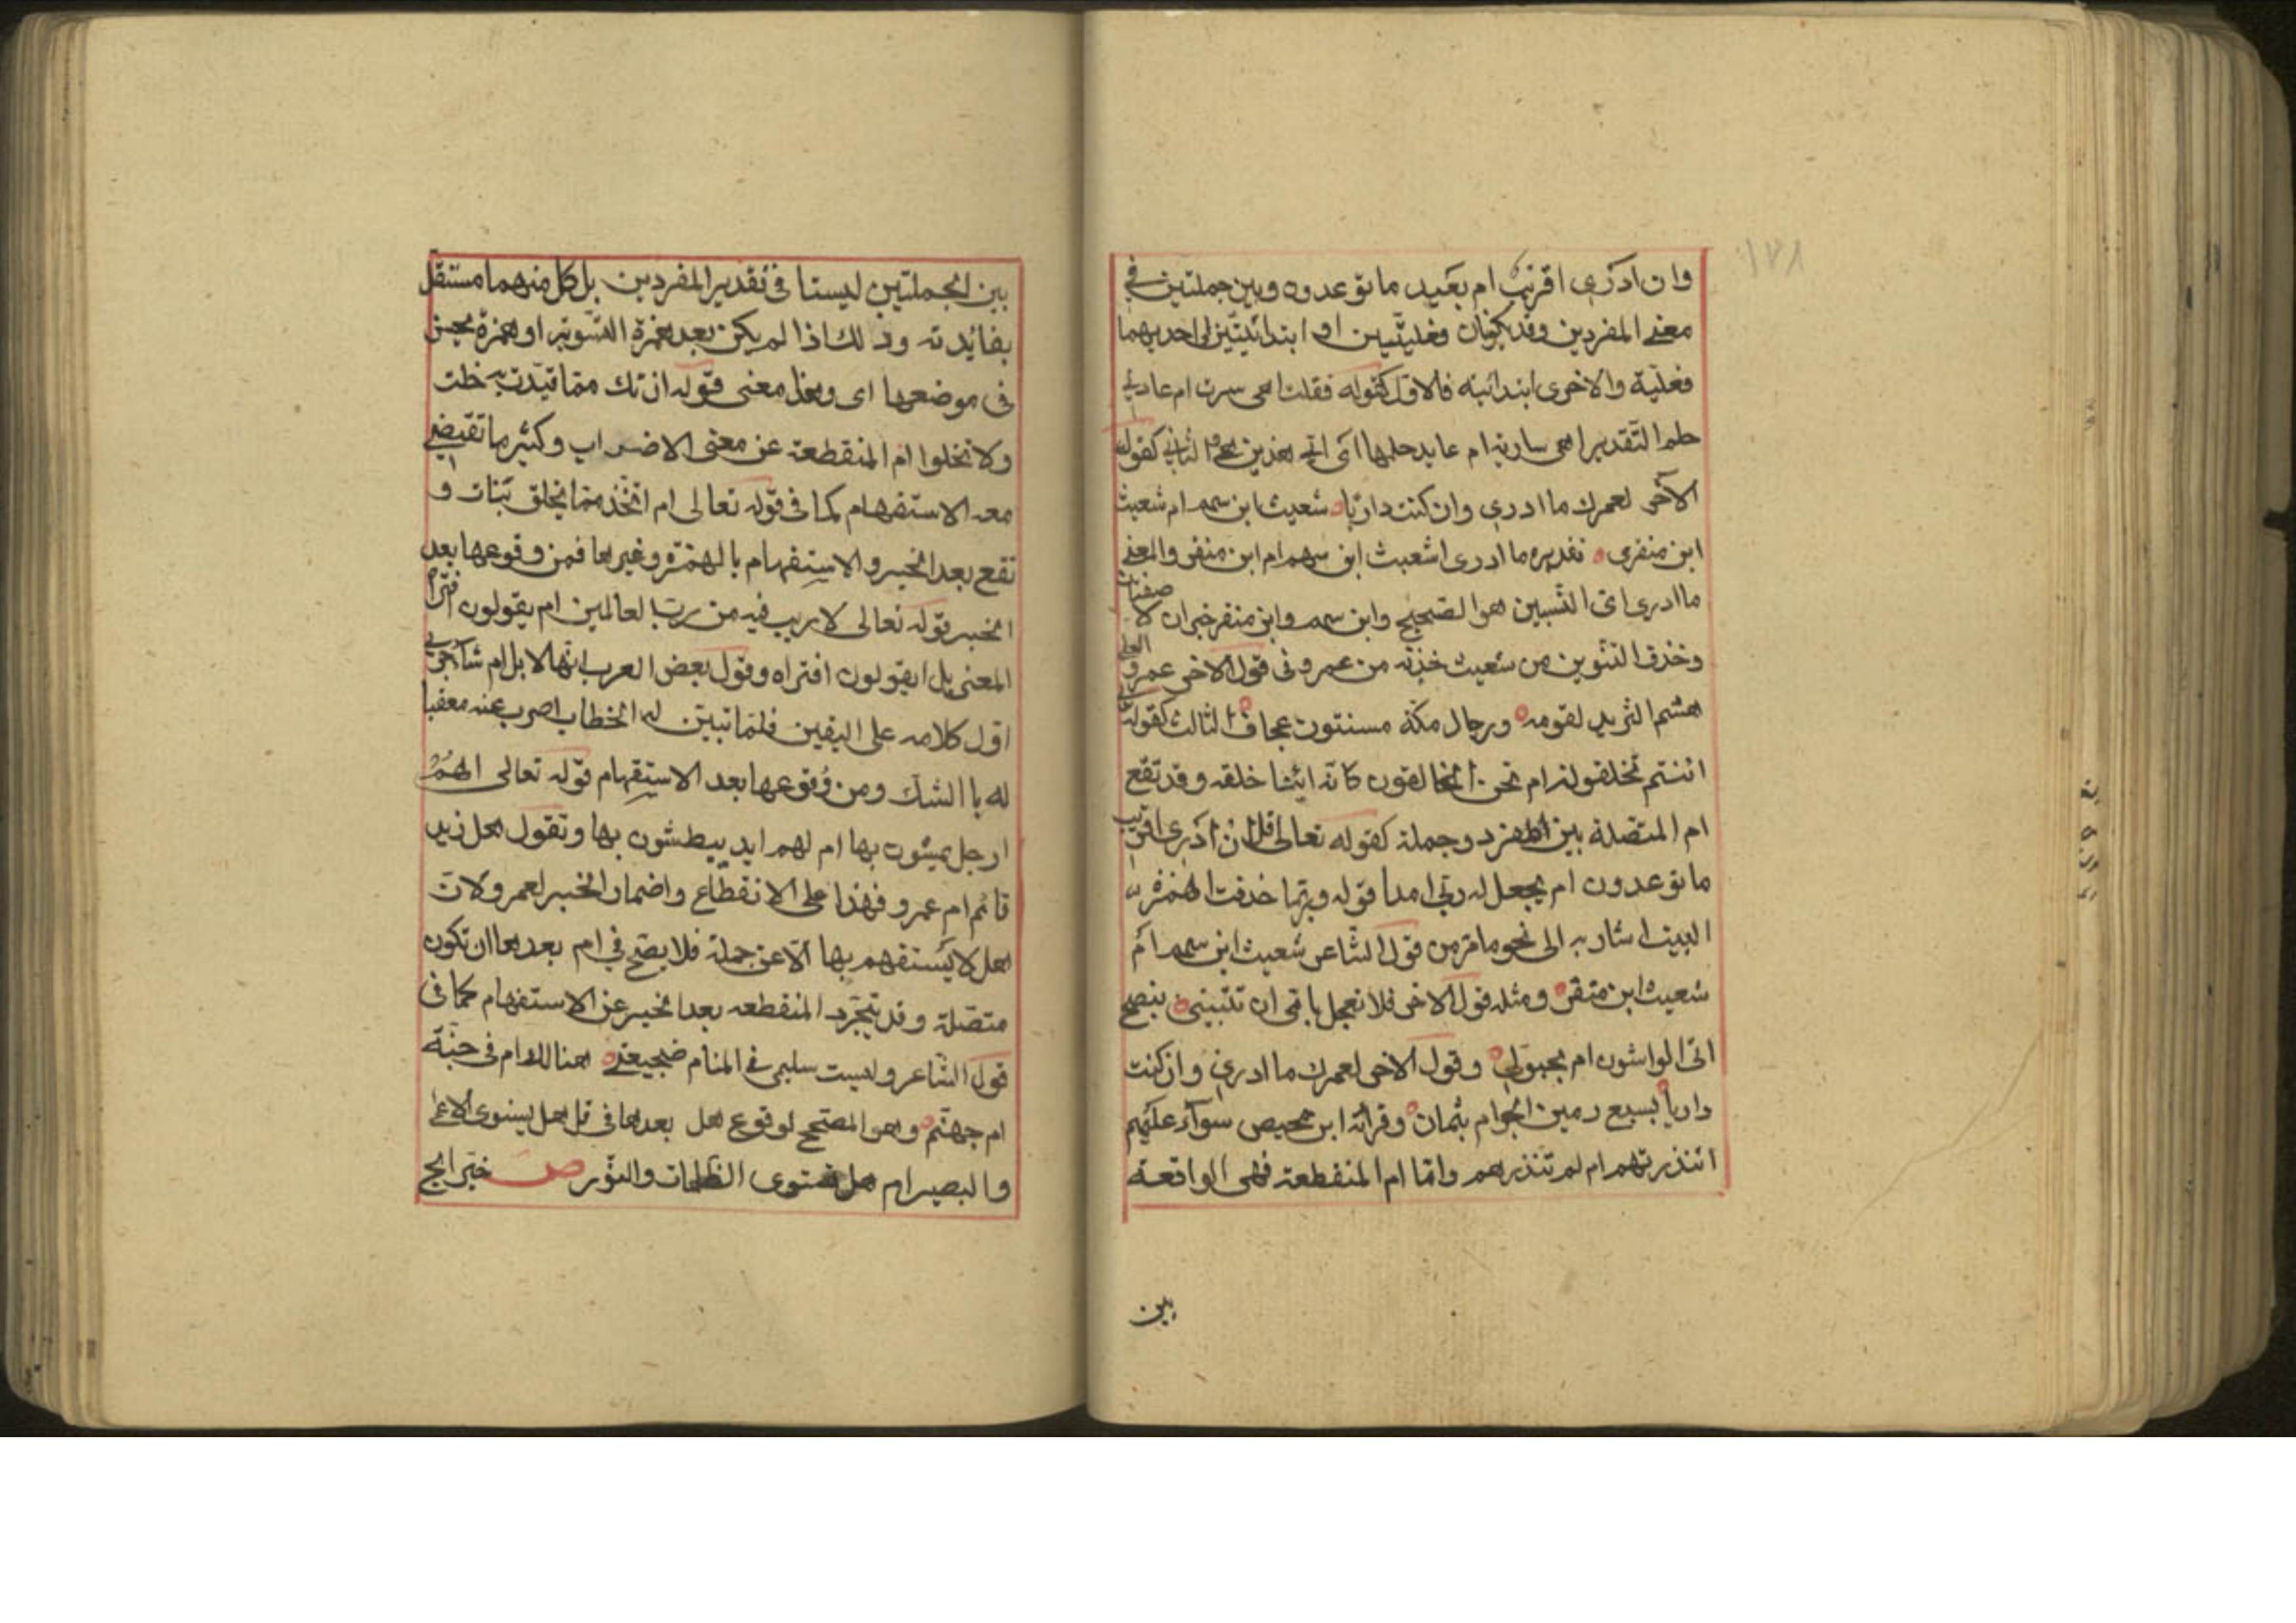 ١٧٨
وان ادري اقريب ام بعيد ما توعدون وبين جملتين في
معنى المفردين وقد يكونان فعليتين او ابتدائيتين او احديهما
فعلية والاخرى ابتدائية فالاول كقوله فقلت اهى سرت ام عادني
حلم التقدير اهى سارية ام عايد حلمها اى اي هذين هو الثاني كقول
الآخر لعمرك ما ادري وان كنت داريا شعيث ابن سهم ام شعيث
ابن منقرى تقديره ما ادرى اشعيث ابن سهم ام ابن منقر والمعنى
ما ادرى اى النسبين هو الصحيح وابن سهم وابن منقر خبران لا صفتان
وحذف التنوين من شعيث حذفه من عمرو في قول الاخر عمرو العلى
هشم الثريد لقومه ورجال مكة مسنتون عجاف الثالث كقوله تعالى
اانتم تخلقونه ام نحن الخالقون كانه ايشا خلقه وقد تقع
ام المتصلة بين المفرد وجملة كقوله تعالى قل ان ادرى اقريب
ما توعدون ام يجعل له ربى امدا قوله وربما حذفت الهمزة
البيت اشار به الى نحو ما مر من قول الشاعر شعيث ابن سهم ام
شعيث ابن منقر ومثله قول الاخر فلا تعجل يا مى ان تتبينى بنصح
اتى الواشون ام بحبول وقول الاخر لعمرك ما ادرى وان كنت
داريا بسبع رمين الجمر ام بثمان وقرائة ابن محيص سوآء عليهم
انذرتهم ام لم تنذرهم واما ام المنقطعة فهى الواقعة
بين
بين الجملتين ليستا في تقدير المفردين بل كل منهما مستقل
بفائدته وذلك اذا لم يكن بعد همزة التسوية او همزة يحسن
في موضعها اى وهذا معنى قوله ان تك مما قيدت به خلت
ولا تخلوا ام المنقطعة عن معنى الاضراب وكثير ما تقيضي
معه الاستفهام كما في قوله تعالى ام اتخذ مما يخلق بنات و
تقع بعد الخبر والاستفهام بالهمزة وغيرها فمن وقوعها بعد
الخبر قوله تعالى لا ريب فيه من رب العالمين ام يقولون افتراه
المعنى بل ايقولون افتراه وقول بعض العرب انها لابل ام شآء فى
اول كلامه على اليقين فلما تبين له الخطا اضرب عنه معقبا
له بالشك ومن وقوعها بعد الاستفهام قوله تعالى الهم
ارجل يمشون بها ام لهم ايد يبطشون بها وتقول هل زيد
قائم ام عمرو فهذا على الانقطاع واضمار الخبر لعمرو لان
هل لا يستفهم بها الا عن جملة فلا يصح في ام بعدها ان تكون
متصلة وقد تتجرد المنقطعه بعد الخبر عن الاستفهام كما في
قول الشاعر وليست سليمى في المنام ضجيعتى هنالك ام في جنة
ام جهنم وهو المصحح لوقوع هل بعدها في قل هل يستوى الاعمى
والبصير ام هل تستوى الظلمات والنور ص خير ابح